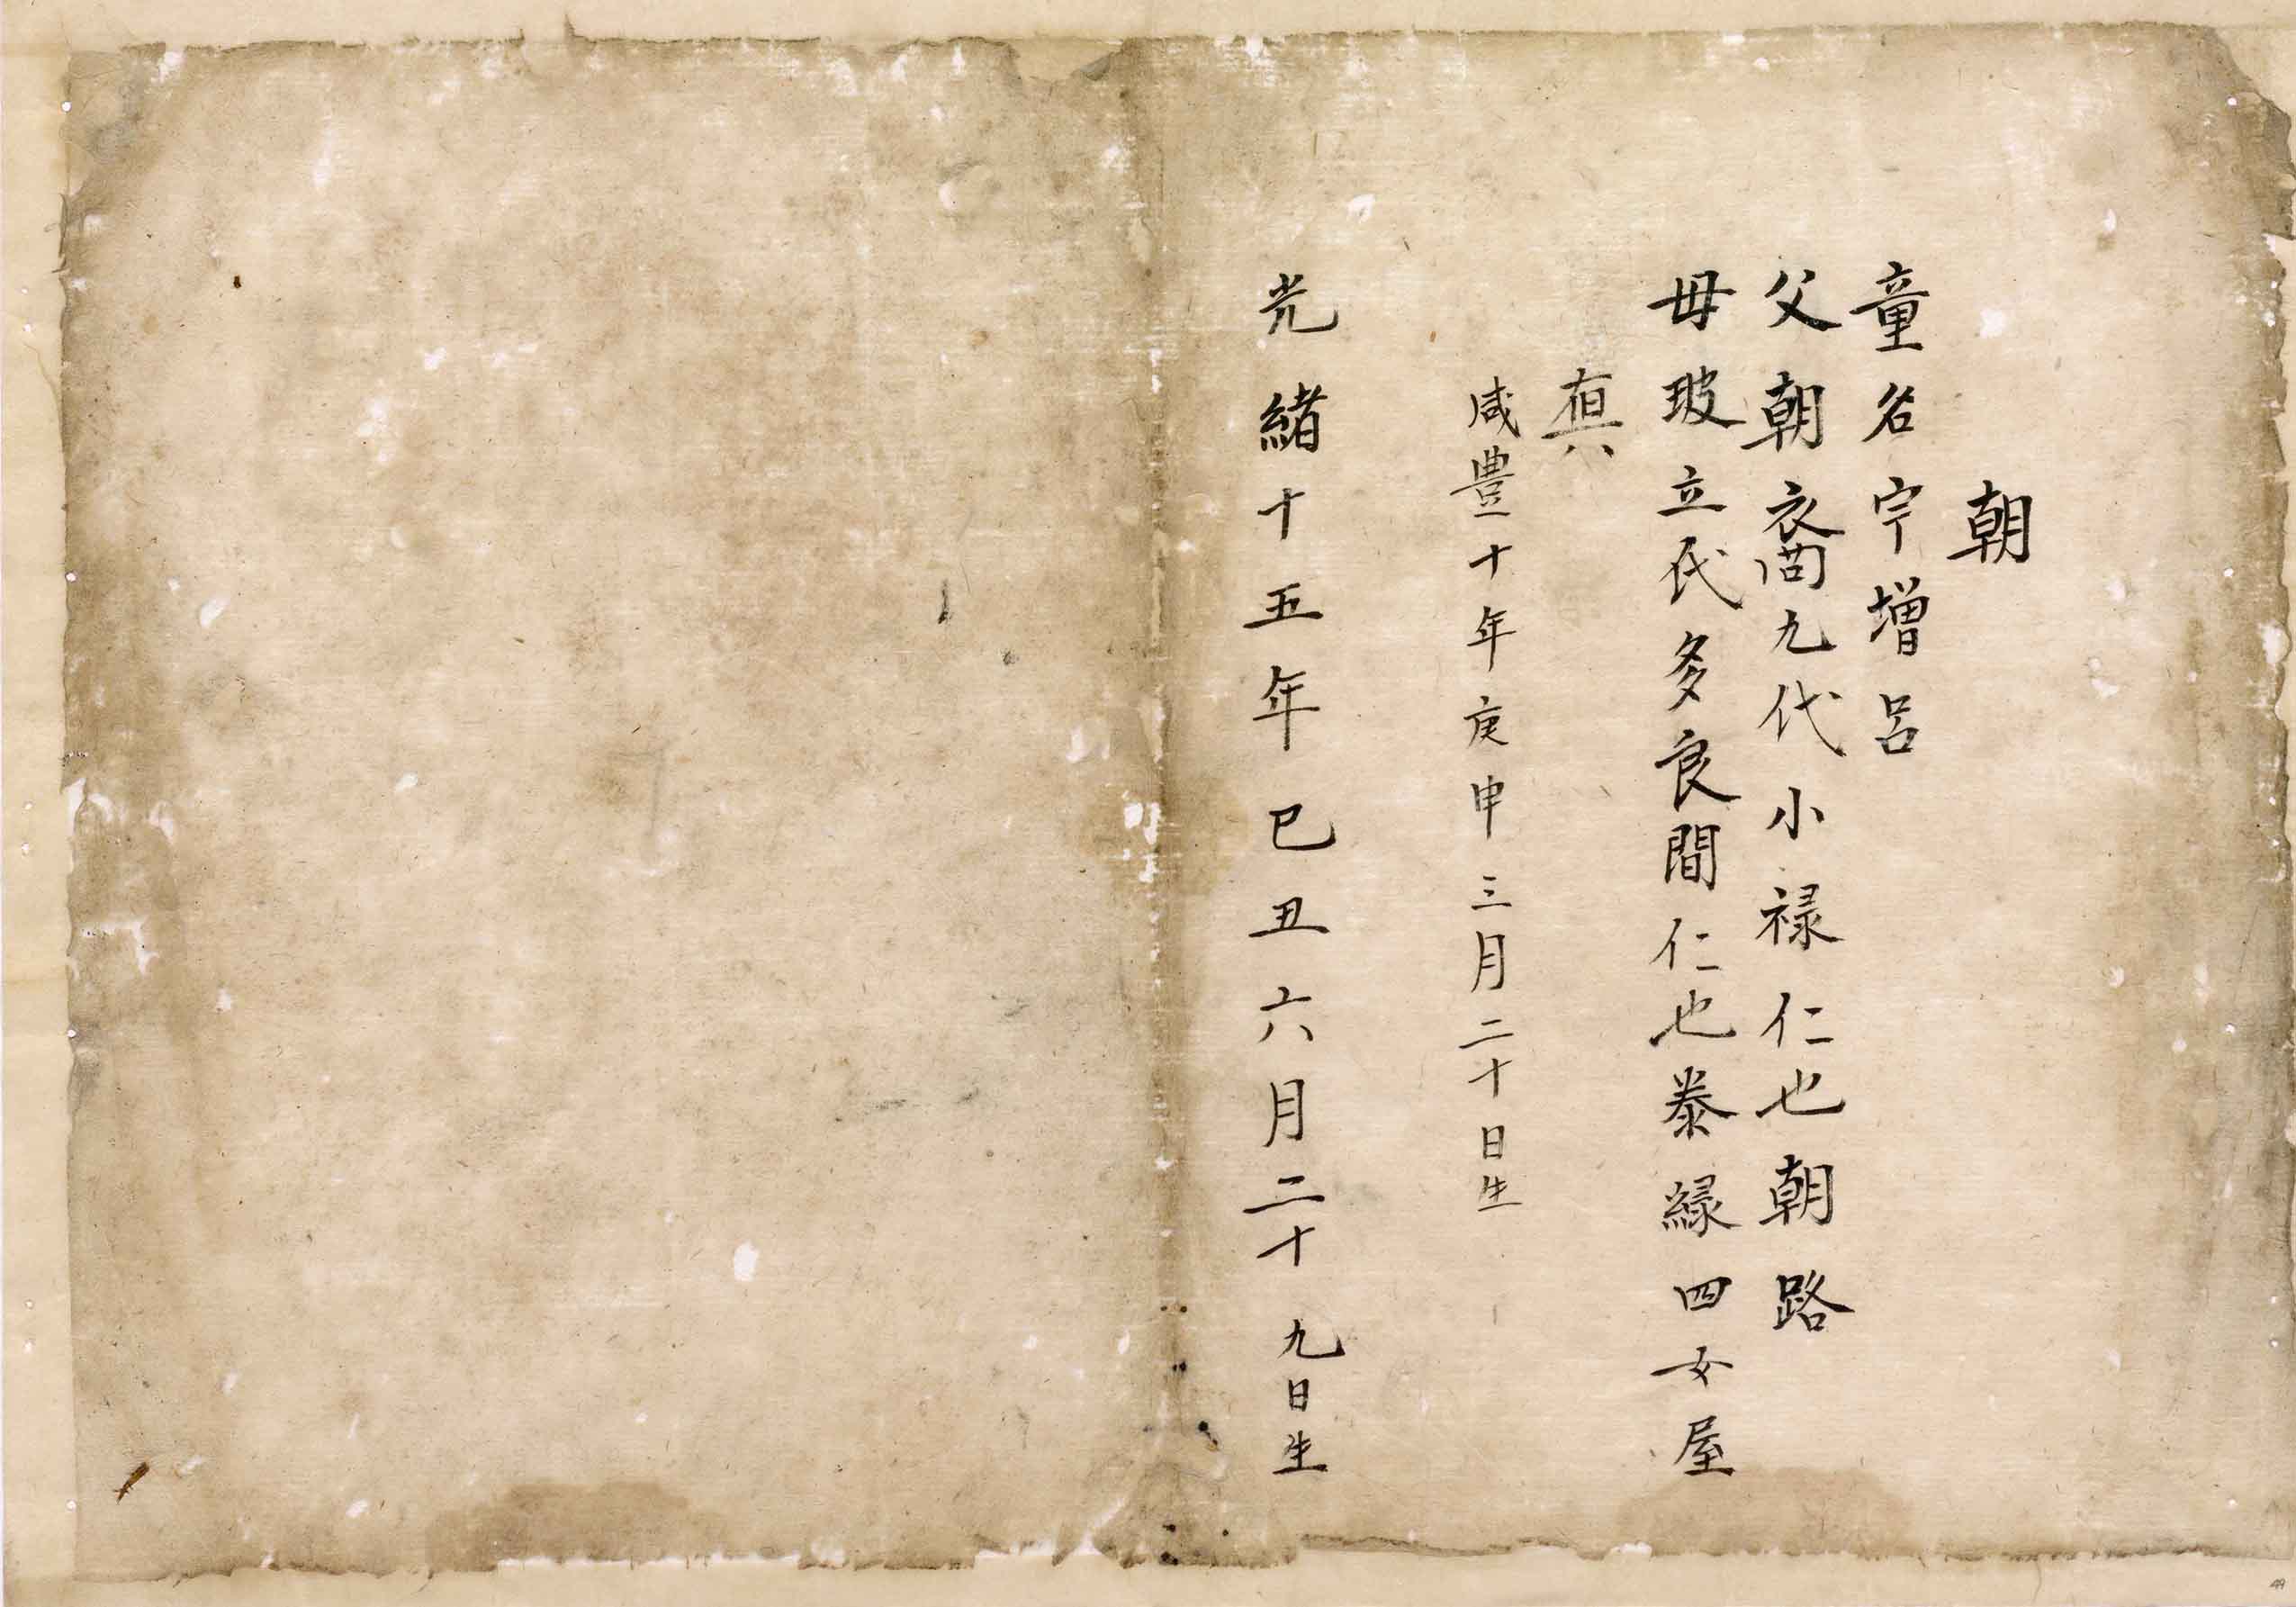 朝
童名宇増呂
父朝裔九代小禄仁也朝路
母玻立氏多良間仁也泰縁四女屋
真
咸豊十年庚申三月二十日生
光緒十五年巳丑六月二十九日生